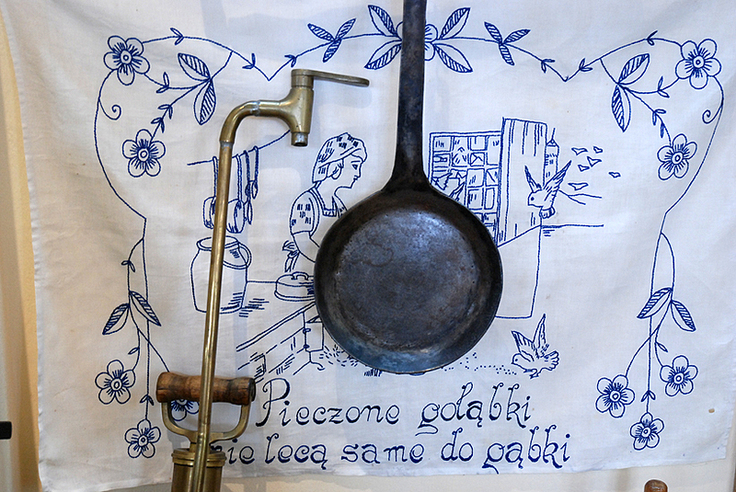 Pieczone gołąbki
nie lecą same do gąbki